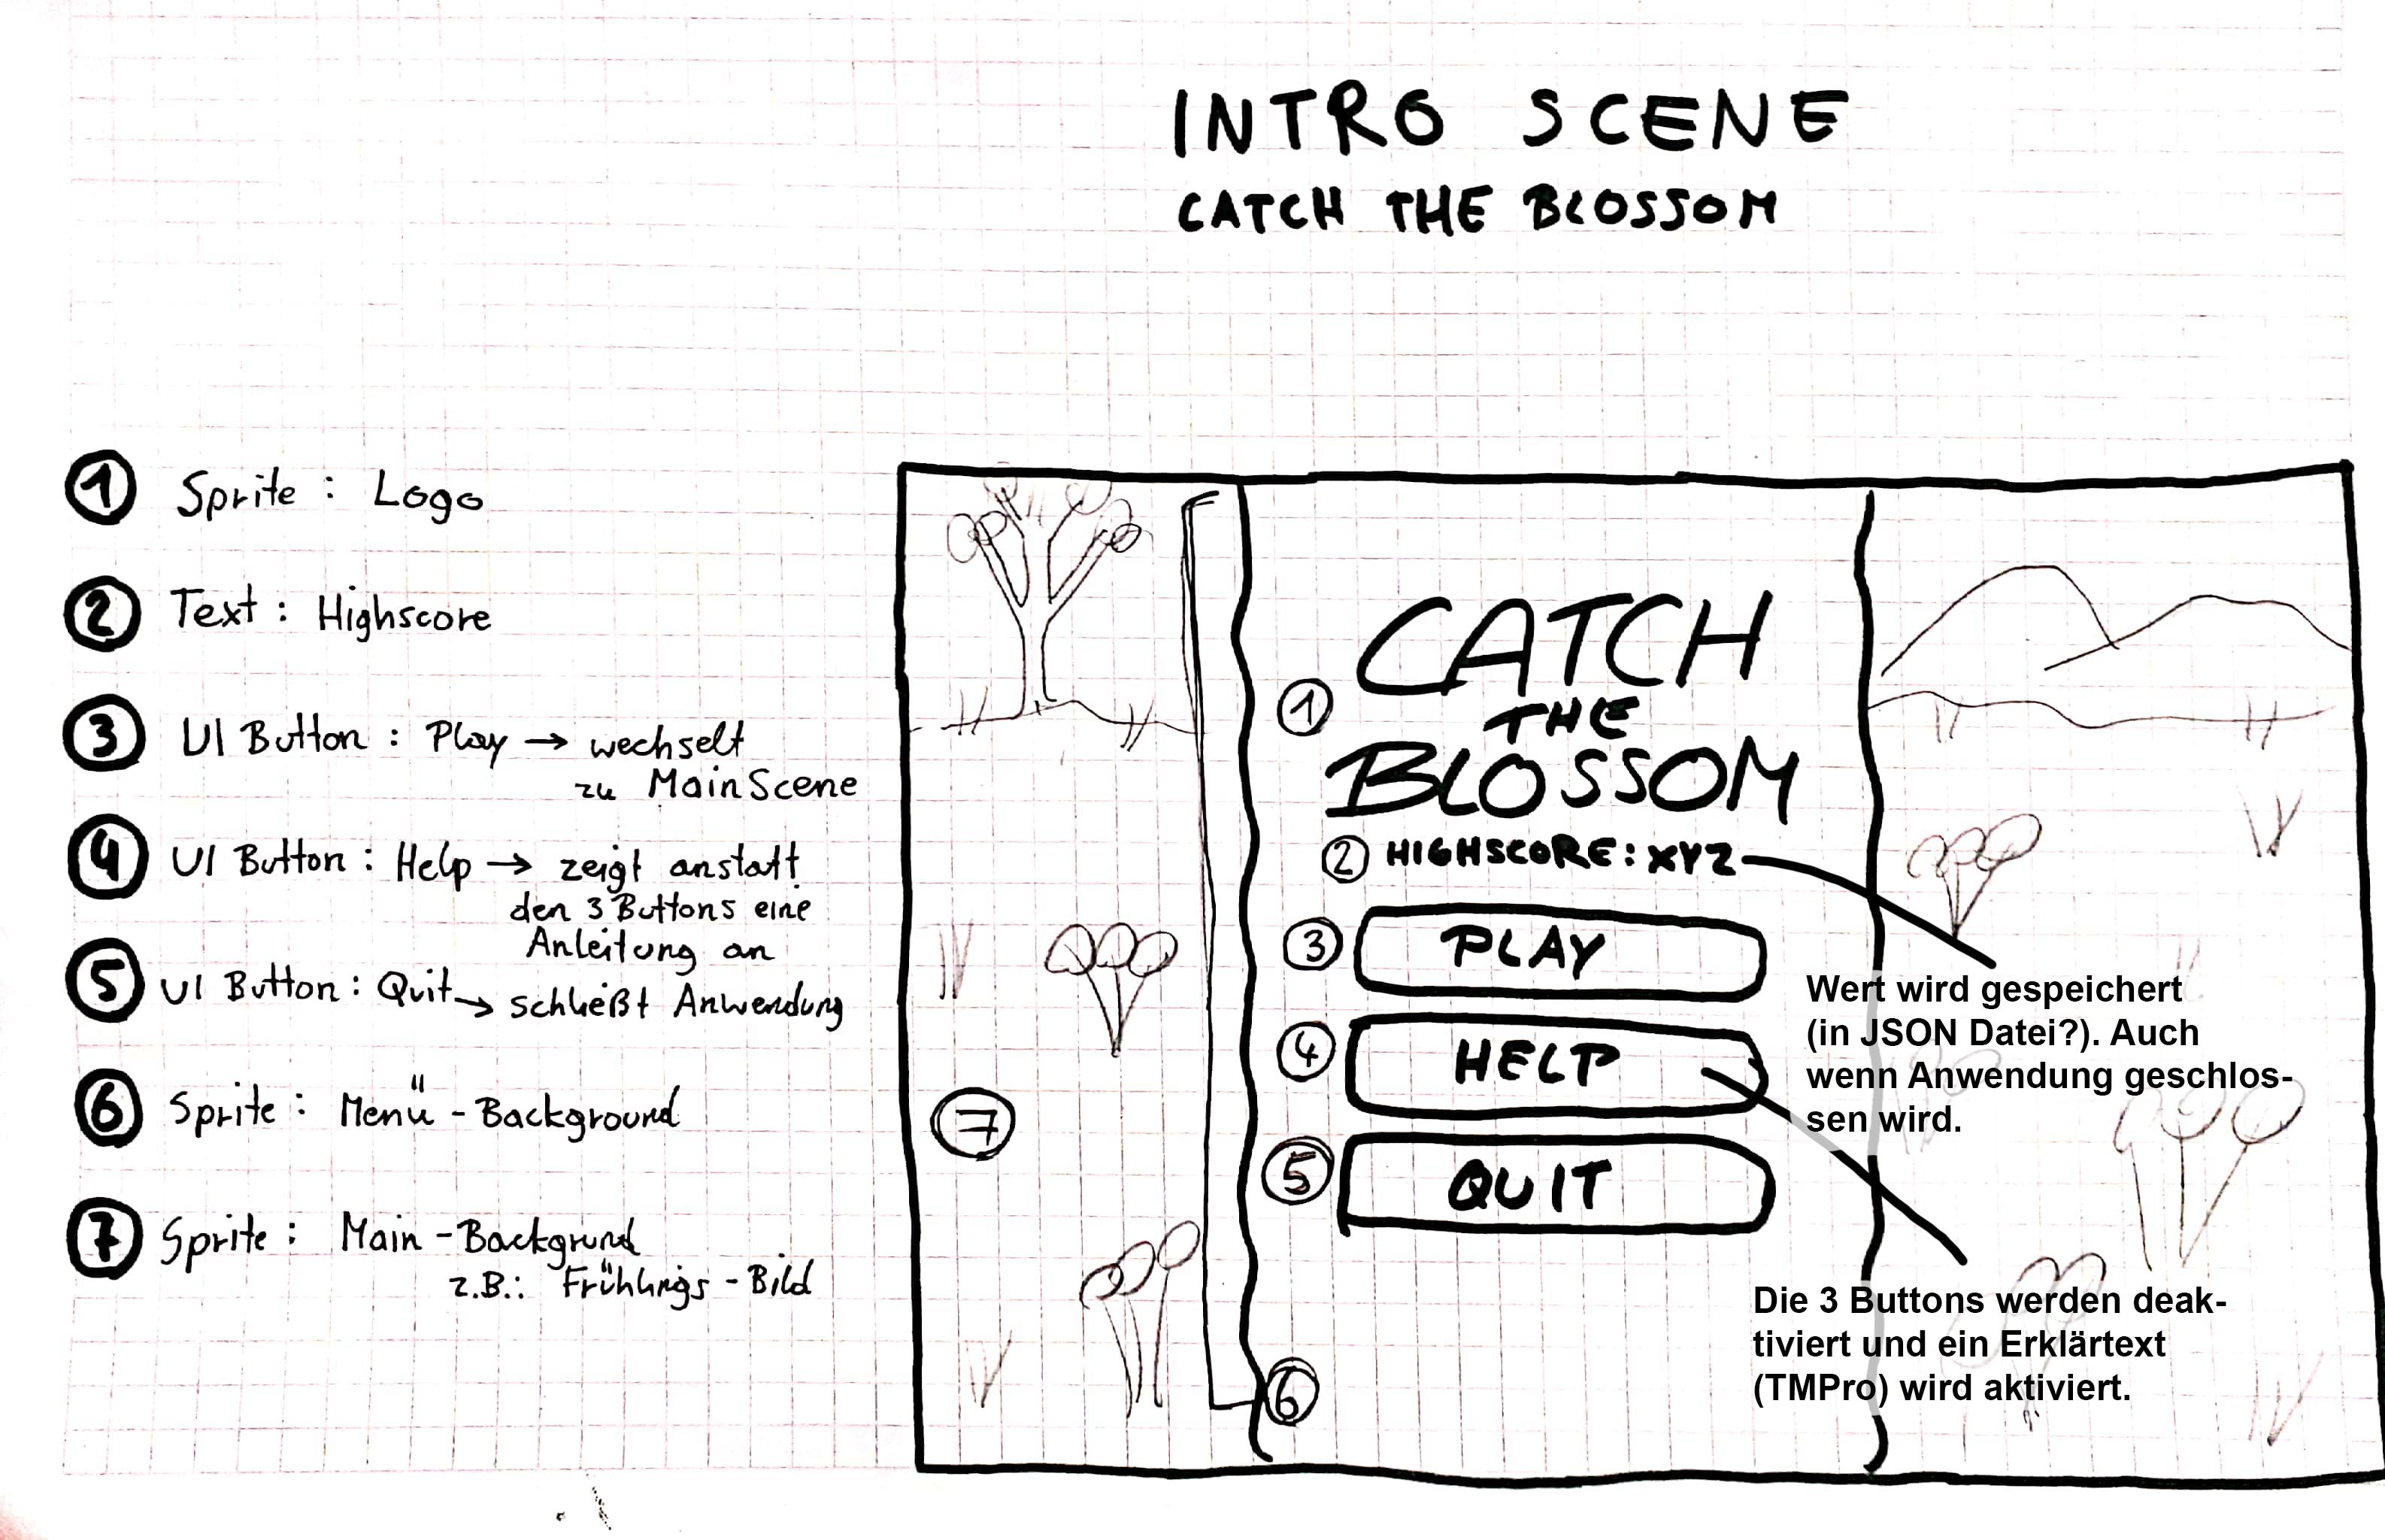 INTRO SCENE
CATCH THE BLOSSOM
1 Sprite: Logo
2 Text: Highscore
3 UI Button: Play → wechselt
zu MainScene
4 UI Button: Help → zeigt anstatt
den 3 Buttons eine
Anleitung an
5 UI Button: Quit → schließt Anwendung
6 Sprite: Menü-Background
7 Sprite: Main-Backgrund
z.B.: Frühlings-Bild
1 CATCH
THE
BLOSSOM
2 HIGHSCORE: XYZ
3 PLAY
4 HELP
5 QUIT
6
7
Wert wird gespeichert
(in JSON Datei?). Auch
wenn Anwendung geschlos-
sen wird.
Die 3 Buttons werden deak-
tiviert und ein Erklärtext
(TMPro) wird aktiviert.